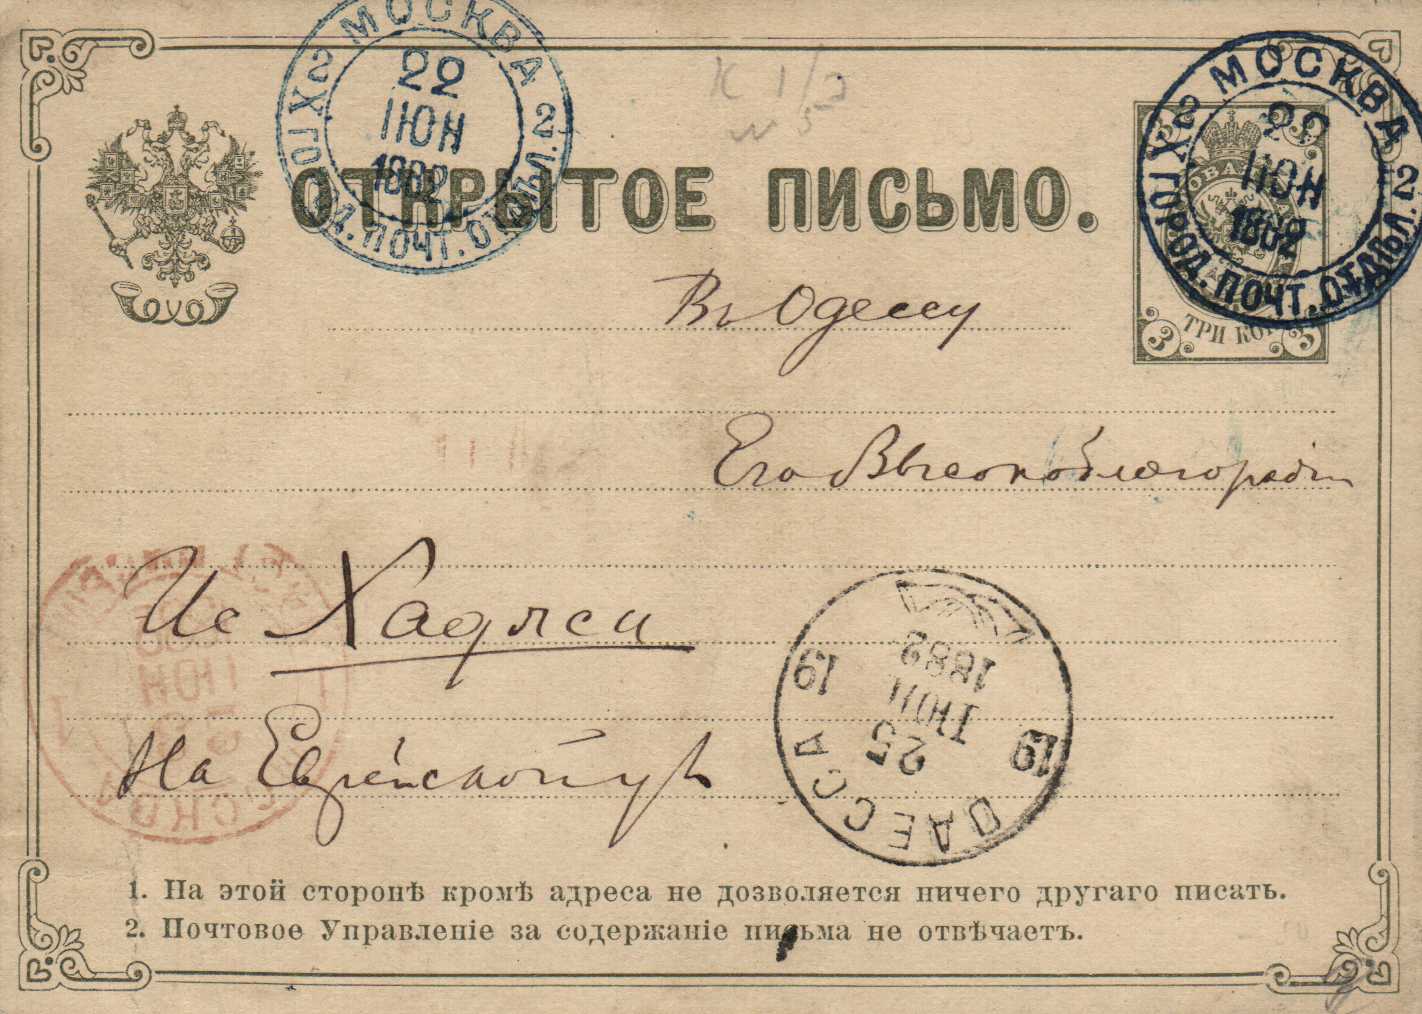 МОСКВА
22
ІЮН
1882
2 Х ГОРОД. ПОЧТ. ОТДѢЛ. 2
МОСКВА
22
ІЮН
1882
2 Х ГОРОД. ПОЧТ. ОТДѢЛ. 2
ОТКРЫТОЕ ПИСЬМО.
3 ТРИ КОП 3
Въ Одессу
Его Высокоблагородію
Ис Хаджси
На Еврейской ул
ОДЕССА
19 19
25
ІЮН
1882
МОСКВА
ІЮН
1. На этой сторонѣ кромѣ адреса не дозволяется ничего другаго писать.
2. Почтовое Управленіе за содержаніе письма не отвѣчаетъ.